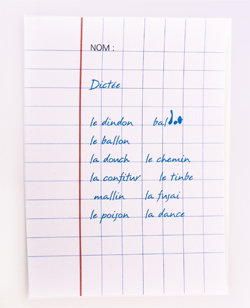 NOM :
Dictée
le dindon bal
le ballon
la douch le chemin
la confitur le tinbe
mallin la fusai
le poison la dance